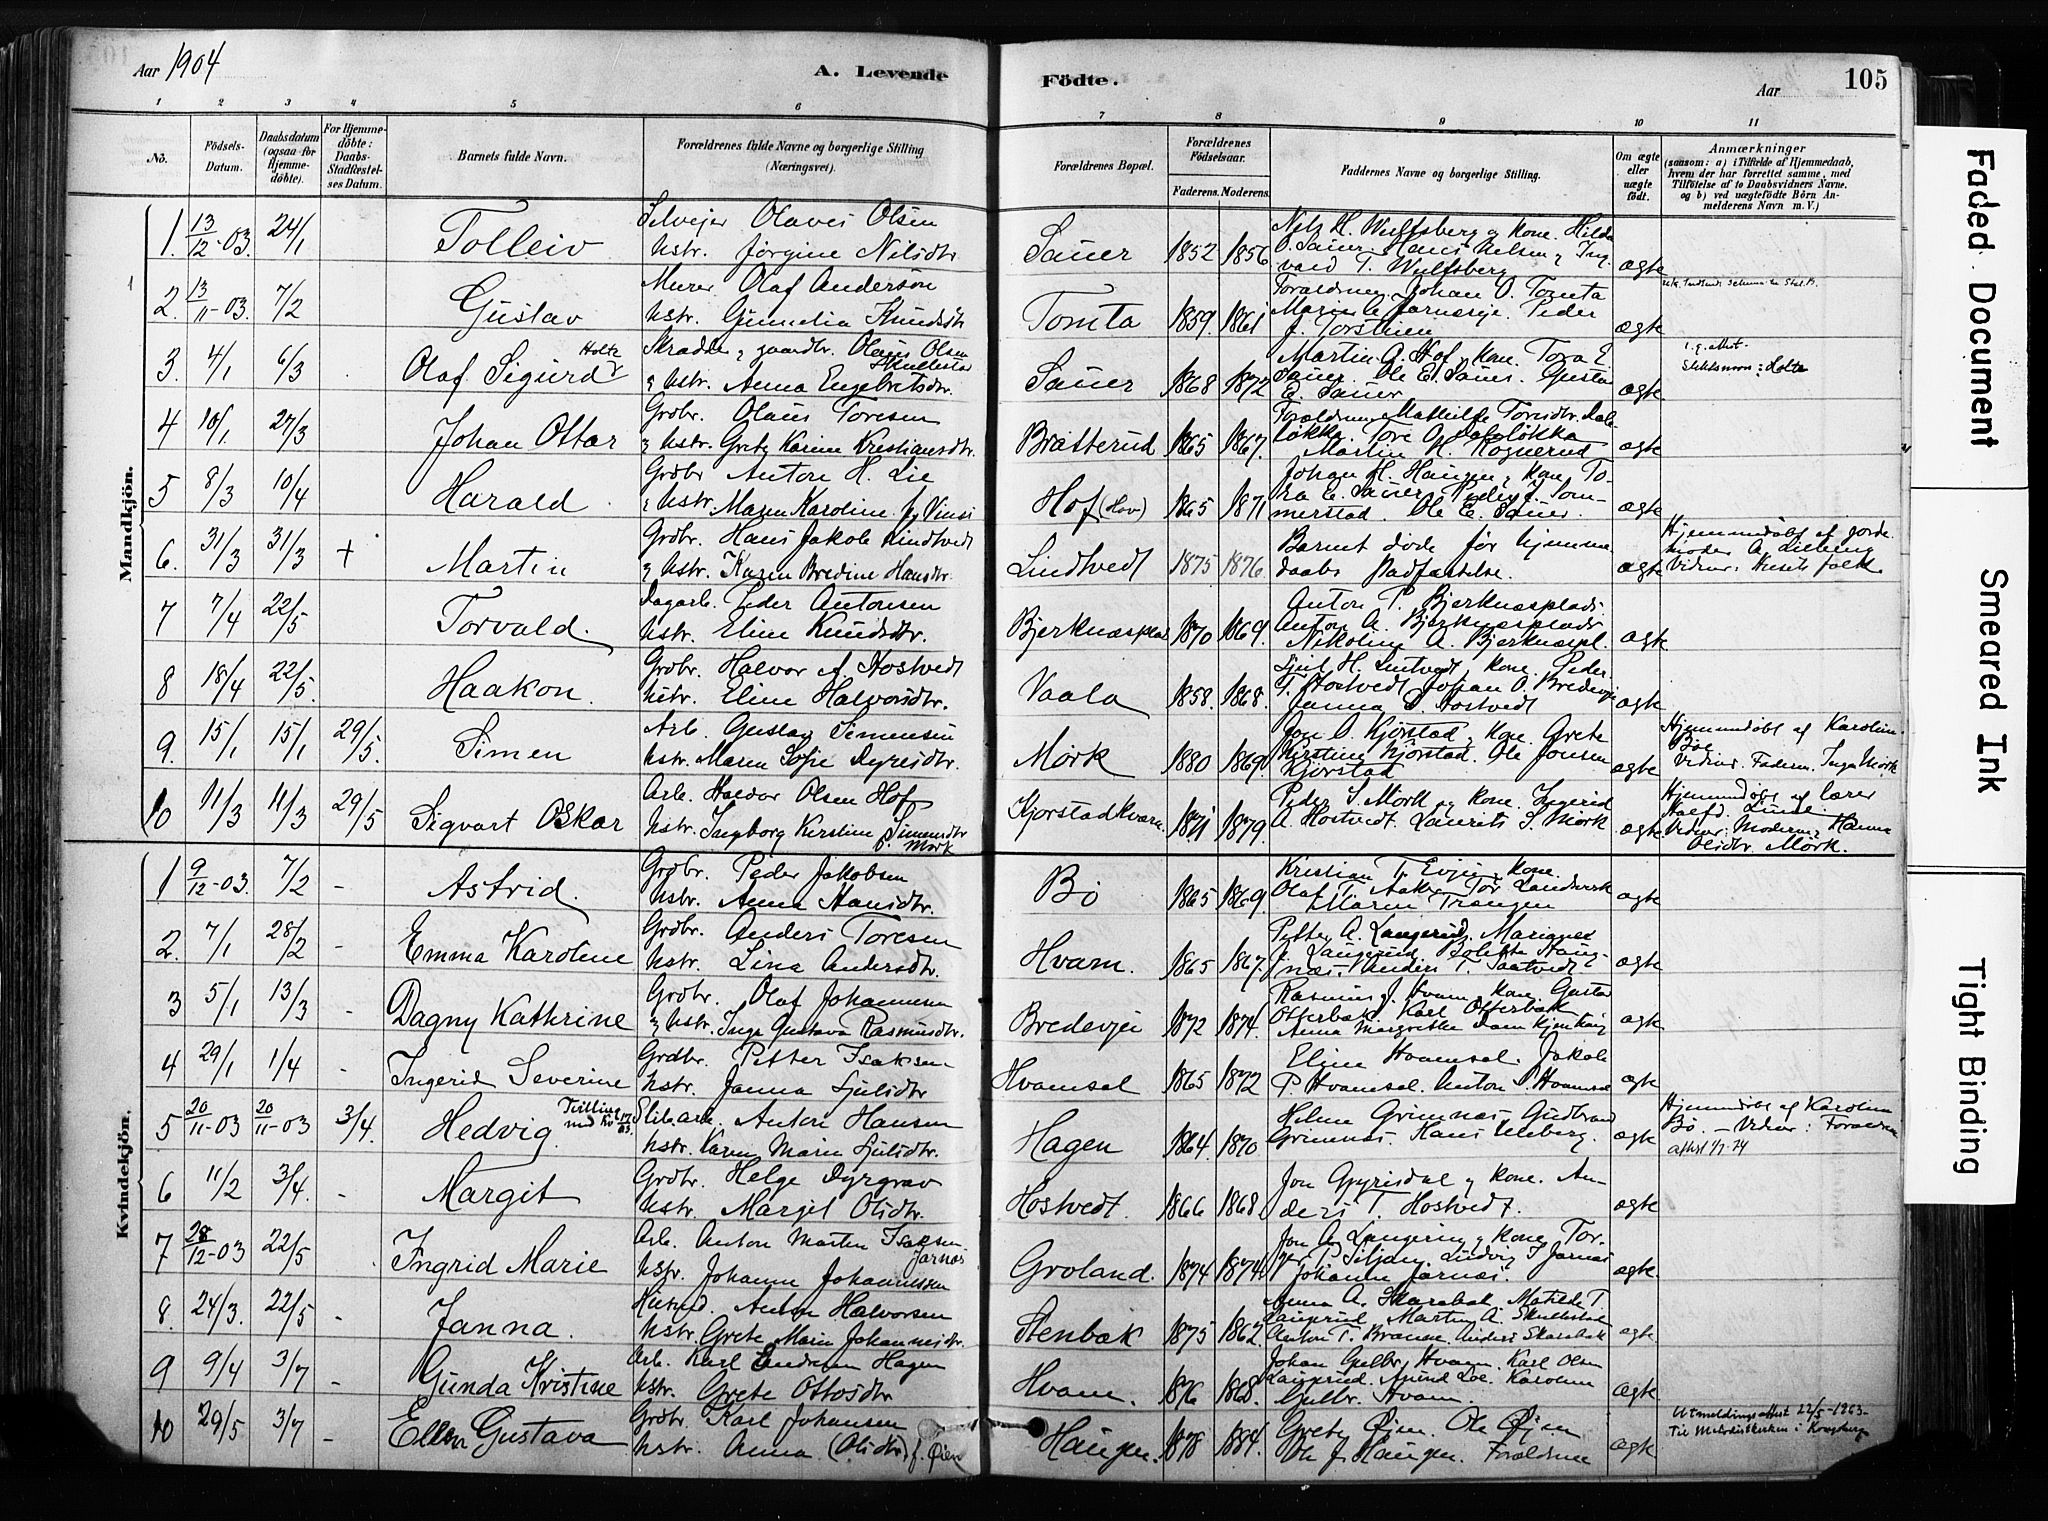 Aar 1904
A. Levende
Födte.
Aar
105
1 2 3 4 5 6 7 8 9 10 11
No.
Födsels-Datum.
Daabsdatum (ogsaa for Hjemmedöbte).
For Hjemmedöbte: Daabs-Stadfæstelses Datum.
Barnets fulde Navn.
Forældrenes fulde Navne og borgerlige Stilling (Næringsvei).
Forældrenes Bopæl.
Forældrenes Födselsaar.
Faderens. Moderens.
Faddernes Navne og borgerlige Stilling.
Om ægte eller uægte födt.
Anmærkninger
(saasom: a) i Tilfælde af Hjemmedaab, hvem der har forrettet samme, med Tilföielse af to Daabsvidners Navne, og b) ved uægtefödte Börn Anmelderens Navn m. V.)
Mandkjön.
1. 13/12-03. 24/1 Tolleiv Selvejer Olaves Olsen
Hstr. Jørgine Nilsdtr. Sauer 1852 1856 Nils H. Wulfsberg og kone. Hilda
O. Sauer. Hans Nelsen, Ing-
vald T. Wulfsberg ægte
2. 13/11-03. 7/2 Gustav Murer Olaf Anderson
Hstr. Gunnelia Knudsdtr Tomta 1859. 1861 Forældrene. Johan O. Tomta
Peder
J. Torstein ægte
3. 4/1 6/3 Olaf Sigurd Holte Skrædd. & gaardbr. Olaus Olsen
Skullestad
& Hstr. Anna Engebretsdtr. Sauer 1868 1872 Martin A. Hof, kone. Tora E
Sauer. Ole E. Sauer. Gustav
E. Sauer ægte
Slektsnavn: Holte
4 10/1. 27/3 Johan Ottar Grdbr. Olaus Toresen
& Hstr. Grete Karine Kristiansdtr. Bratterud 1865 1867. Forældrene, Mathilde Toresdtr. Dale-
løkka. Tore O. Daleløkka
Martin H. Rognerud ægte
5 8/3 10/4 Harald. Grdbr Anton H. Lie
& Hstr. Maren Karoline Hof (Hov) 1865 1871 Johan H. Haugen, kone To-
ra E. Sauer, Peder J. Som-
merstad. Ole E. Sauer. ægte
6. 31/3 31/3 + Martin Grdbr. Hans Jakob Lindtvedt
& Hstr. Karen Bredine Hansdtr. Lindtvedt 1875 1876 Barnet døde før hjemme-
daabs stadfæstelse. ægte Hjemmedøbt af jorde-
moder A. Liebeng
Vidner: Husets folk.
7 7/4 22/5 Torvald. Dagarb. Peder Antonsen
Hstr. Eline Knudsdtr. Bjerknæsplad 1870 1864. Anton P. Bjerknæsplads.
Anton A. Bjerknæsplads
Nikoline A. Bjerknæspl. ægte
8 18/4 22/5. Haakon. Grdbr. Halvor A. Hostvedt
Hstr. Eline Halvorsdtr. Vaala 1858. 1868. Sjul H. Lintvedt, kone. Peder
T. Hostvedt Johan O. Bredevje
Janna P. Hostvedt ægte
9. 15/1 15/1 29/5 Simen Arb. Gustav Simensen
Hstr. Maren Sofie Dyresdtr. Mørk 1880 1869 Jon O. Kjørstad, kone. Grete
Kirstine Kjørstad. Ole Jonsen
Kjørstad ægte Hjemmedøbt af Karoline
Bøe
Vidner: Faderen. Inga Mørk.
10 11/3 11/3 29/5 Sigvart Oskar Arb. Haldor Olsen Hof
Hstr. Ingborg Kirstine Simensdtr
f. Mørk Kjørstadkværn. 1871 1879. Peder S. Mørk og kone. Ingerid
A. Hostvedt. Laurits S. Mørk ægte Hjemmedøbt af lærer
Halfd. Lunde.
Vidner: Moderen, Hanna
Olsdtr. Mørk.
Kvindekjön.
1 9/12-03. 7/2 - Astrid. Grdbr. Peder Jakobsen
Hstr. Anna Hansdtr. Bø 1865 1869. Kristian T. Evju, kone.
Olaf T. Aaker Tor Landsverk
Maren Trangen ægte
2. 7/1 28/2 - Emma Karoline Grdbr. Anders Toresen
Hstr. Lina Andersdtr. Hvam. 1865 1867. Petter A. Langerud. Marianes
J. Langerud Bolette Haug-
næs. Anders T. Saatvedt ægte
3 5/1 13/3 - Dagny Kathrine Grdbr. Olaf Johannesen
& Hstr. Inga Gustava Rasmusdtr. Bredevjei 1872 1874. Rasmus J. Hvam, kone Gustav
Otterbæk Karl Otterbæk
Anna Margrethe ægte
4 29/1 1/4 - Ingerid Severine Grdbr. Petter Isaksen
Hstr. Janna Sjulsdtr Hvamsal 1865 1872 Eline Hvamsal. Jakob
P. Hvamsal. Anton P. Hvamsal ægte
5 20/11-03 20/11-03 3/4. Hedvig Tvilling Anton Hansen
Hstr. Karen Marie Sjulsdtr. Hagen 1864. 1870 Helene Grimnæs. Gudbrand
Grimnæs. Hans Ueberg. ægte Hjemmedøbt af Karoline
Bø. - Vidner: Forældrene
attest
6 11/2 3/4. - Margit Grdbr. Helge Dyrgrav
Hstr. Margit Olsdtr. Hostvedt. 1866 1868. Jon Gpyrisdal og kone. An-
ders T. Hostvedt. ægte
7 28/12-03 22/5 Ingrid Marie Arb. Anton Martin Isaksen
Jarnæs
Hstr. Johanne Johannessen Groland. 1874 1874. Jon A. Langerin, kone, Tor-
ger P. Siljan, Ludvig I. Jarnæs
Johanne Jarnæs. ægte.
8. 24/3. 22/5 - Janna. Husmd. Anton Halvorsen
Hstr. Grete Marie Johannesdtr. Stenbæk 1875 1862. Anna A. Skarabæk. Matilde T.
Langerud. Martin A. Skullestad
Anton T. Anders Skarabæk ægte
9 9/4 3/7 - Gunda Kristine Arb. Karl Endresen Hagen
Hstr. Grete Ottosdtr Hvam. 1876 1868. Johan Gulbr. Hvam. Karl Olsen
Langerud. Amund Loe. Karoline
Gulbr. Hvam. ægte
10 29/5 3/7 - Ellen Gustava Grdbr. Karl Johansen
Hstr. Anna (Olsdtr) f. Øien Haugen. 1878 1884. Grethe Øjen. Ole Øjen
Ole J. Haugen. Forældrene ægte Utmeldingsattest 22/5-1963-
Til Metodistkirken i Kongsberg
Faded Document
Smeared Ink
Tight Binding